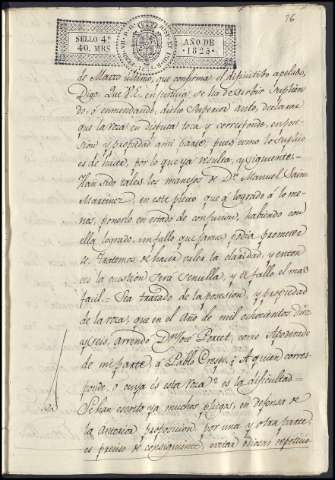 76
SELLO 4º
40. MRS
AÑO DE
1825
de Marzo ultimo, que confirma el difinitibo apelado,
Digo: Que V.E. en justicia se ha de serbir suplien
do, ó enmendando, dicho Superior auto, declarar
que la roza en disputa toca y corresponde, en pose
sion y propiedad ami parte, pues como lo suplico
es de hacer, por lo que ya resulta, y siguiente:
Han sido tales los manejos de Dn. Manuel Sainz
Martinez, en este pleito, que á logrado á lo me
nos, ponerlo en estado de confusion, habiendo con
ella logrado, un fallo que jamas podia prometer
se. Tratemos de hacer valer la claridad, y enton
ces la cuestion será sencilla, y el fallo el mas
facil = Se á tratado de la posesion, y propiedad
de la roza, que en el Año de mil ochocientos diez
y seis, arrendó Dn. José Pravet, como Apoderado
de mi parte, á Pablo Crespo; ¿A quien corres
ponde, ó cuya es esta roza? es la dificultad =
Se han escrito ya muchos pliegos, en defensa de
la anterior proposicion por una y otra parte;
es preciso de consiguiente, evitar ahora repeticio